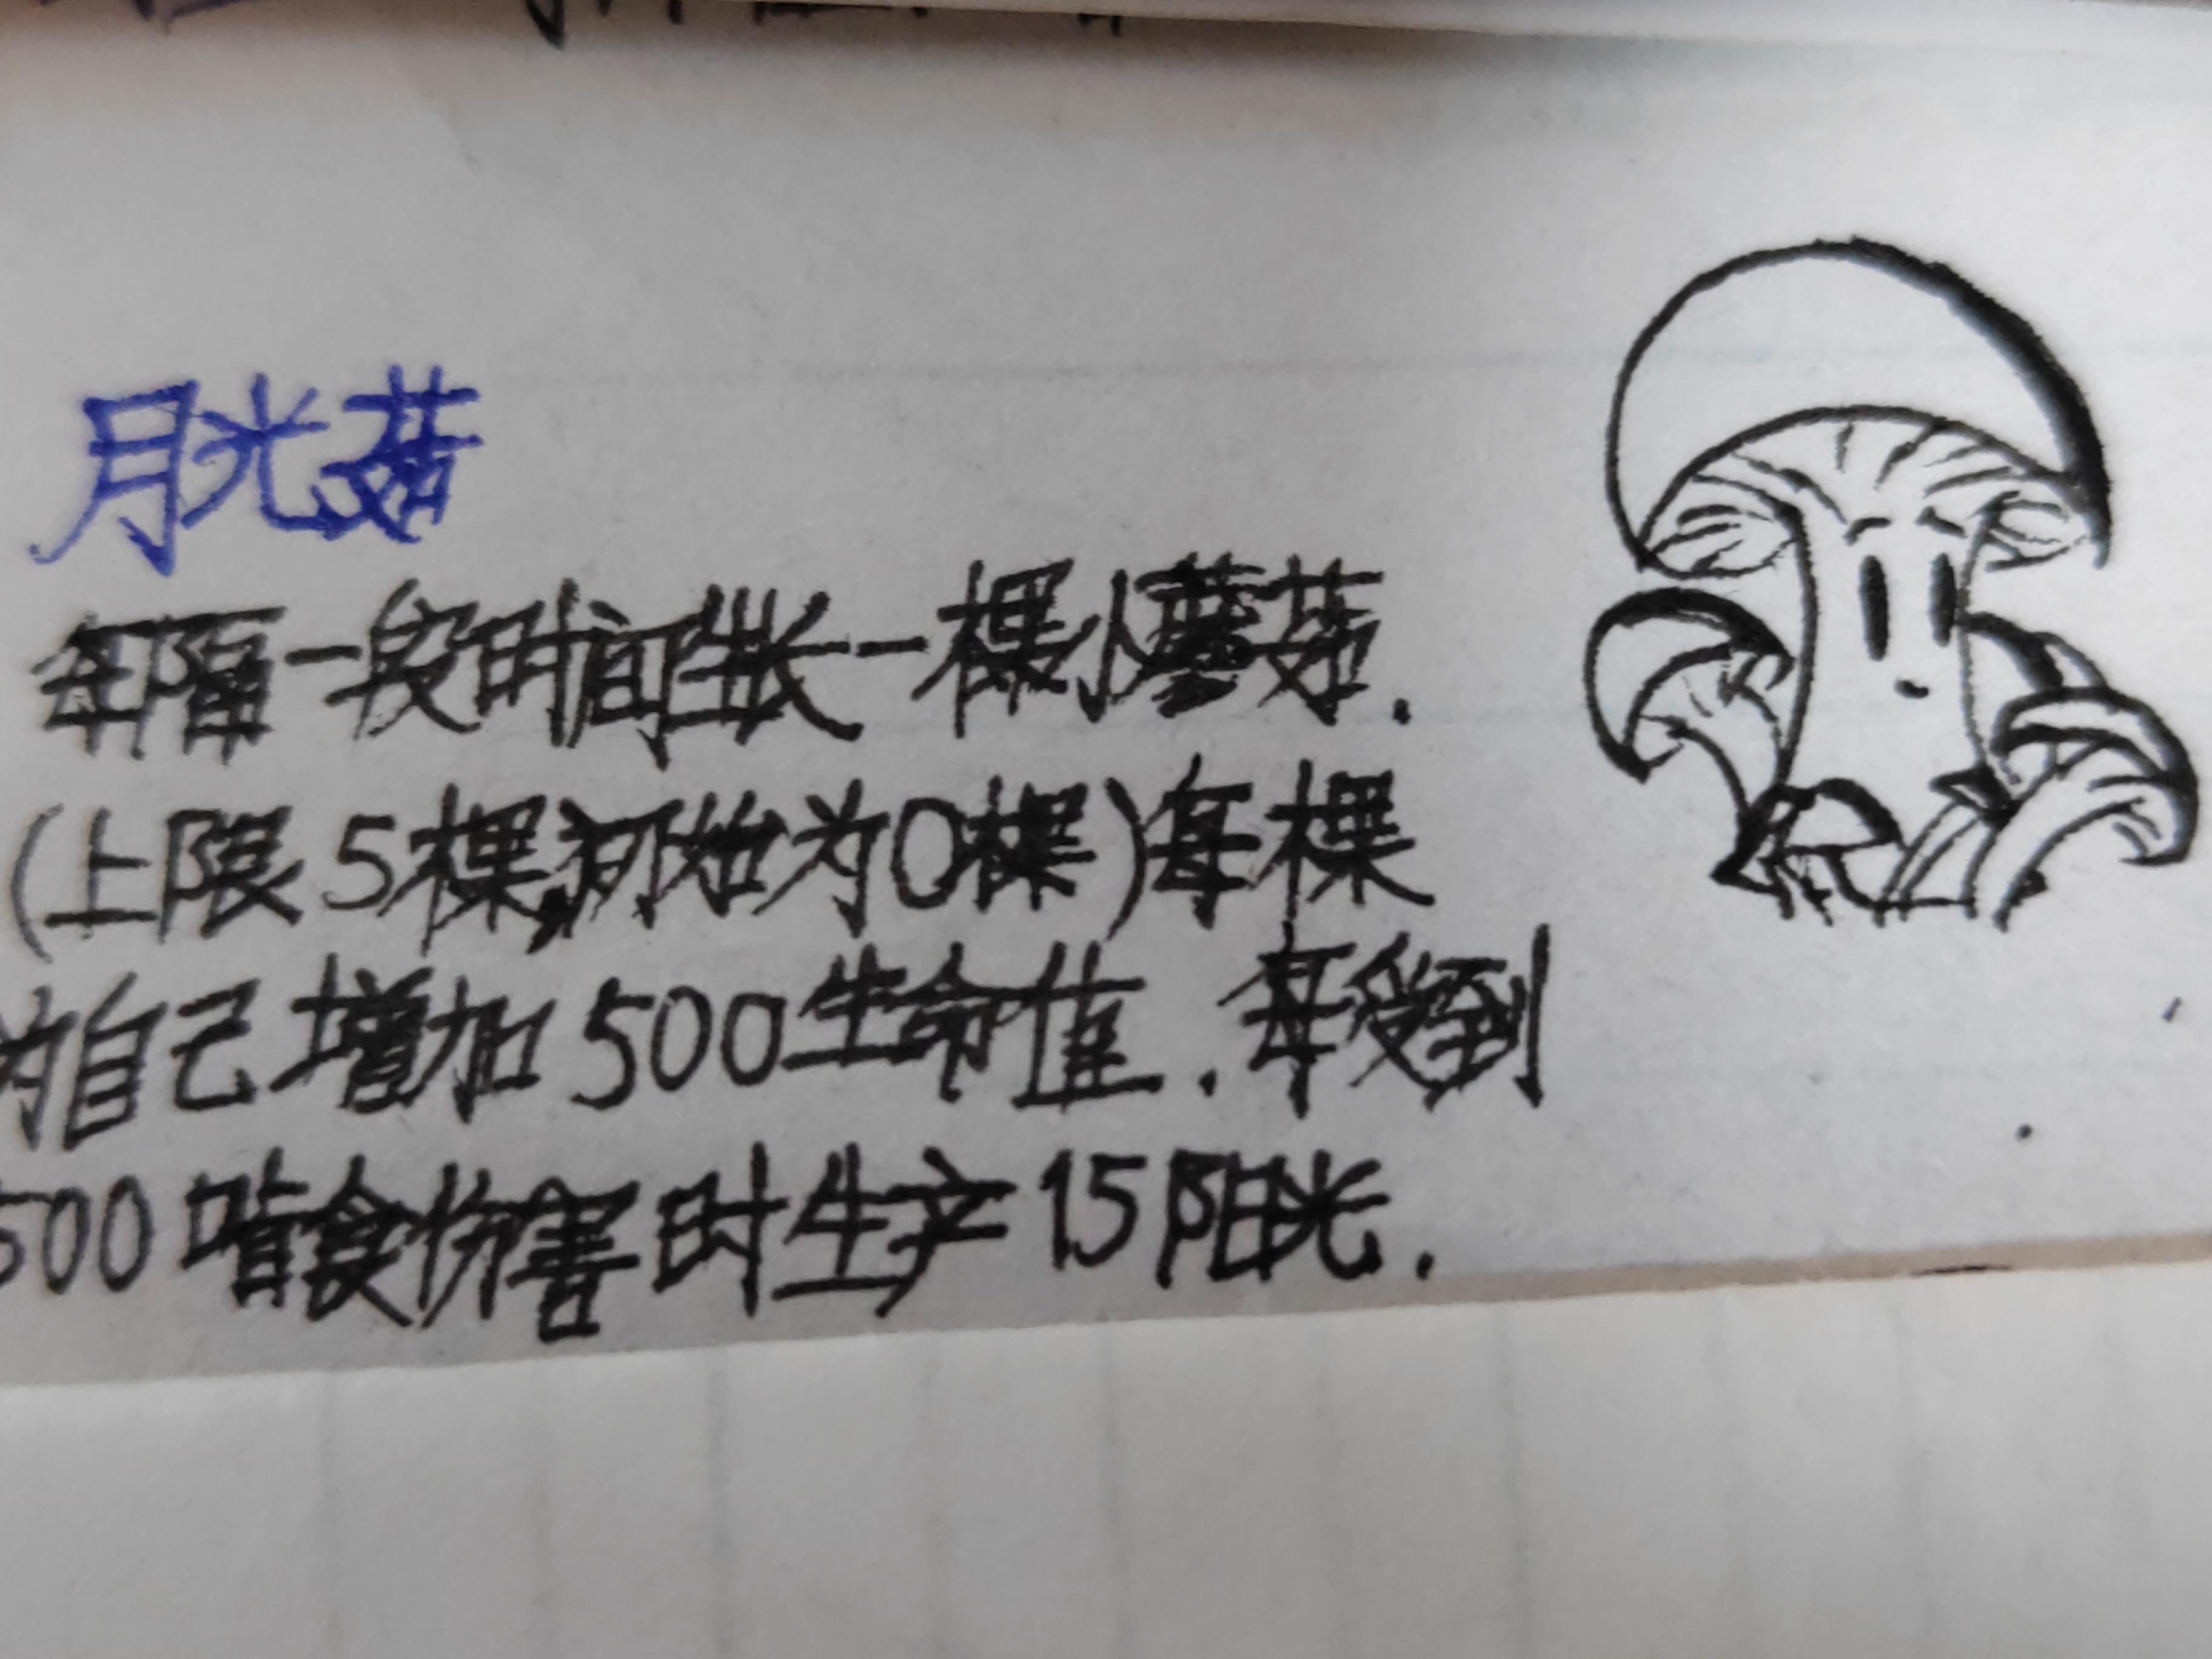 月光菇
每隔一段时间生长一棵小蘑菇.
(上限5棵,初始为0棵)每棵
为自己增加500生命值.每受到
500啃食伤害时生产15阳光.